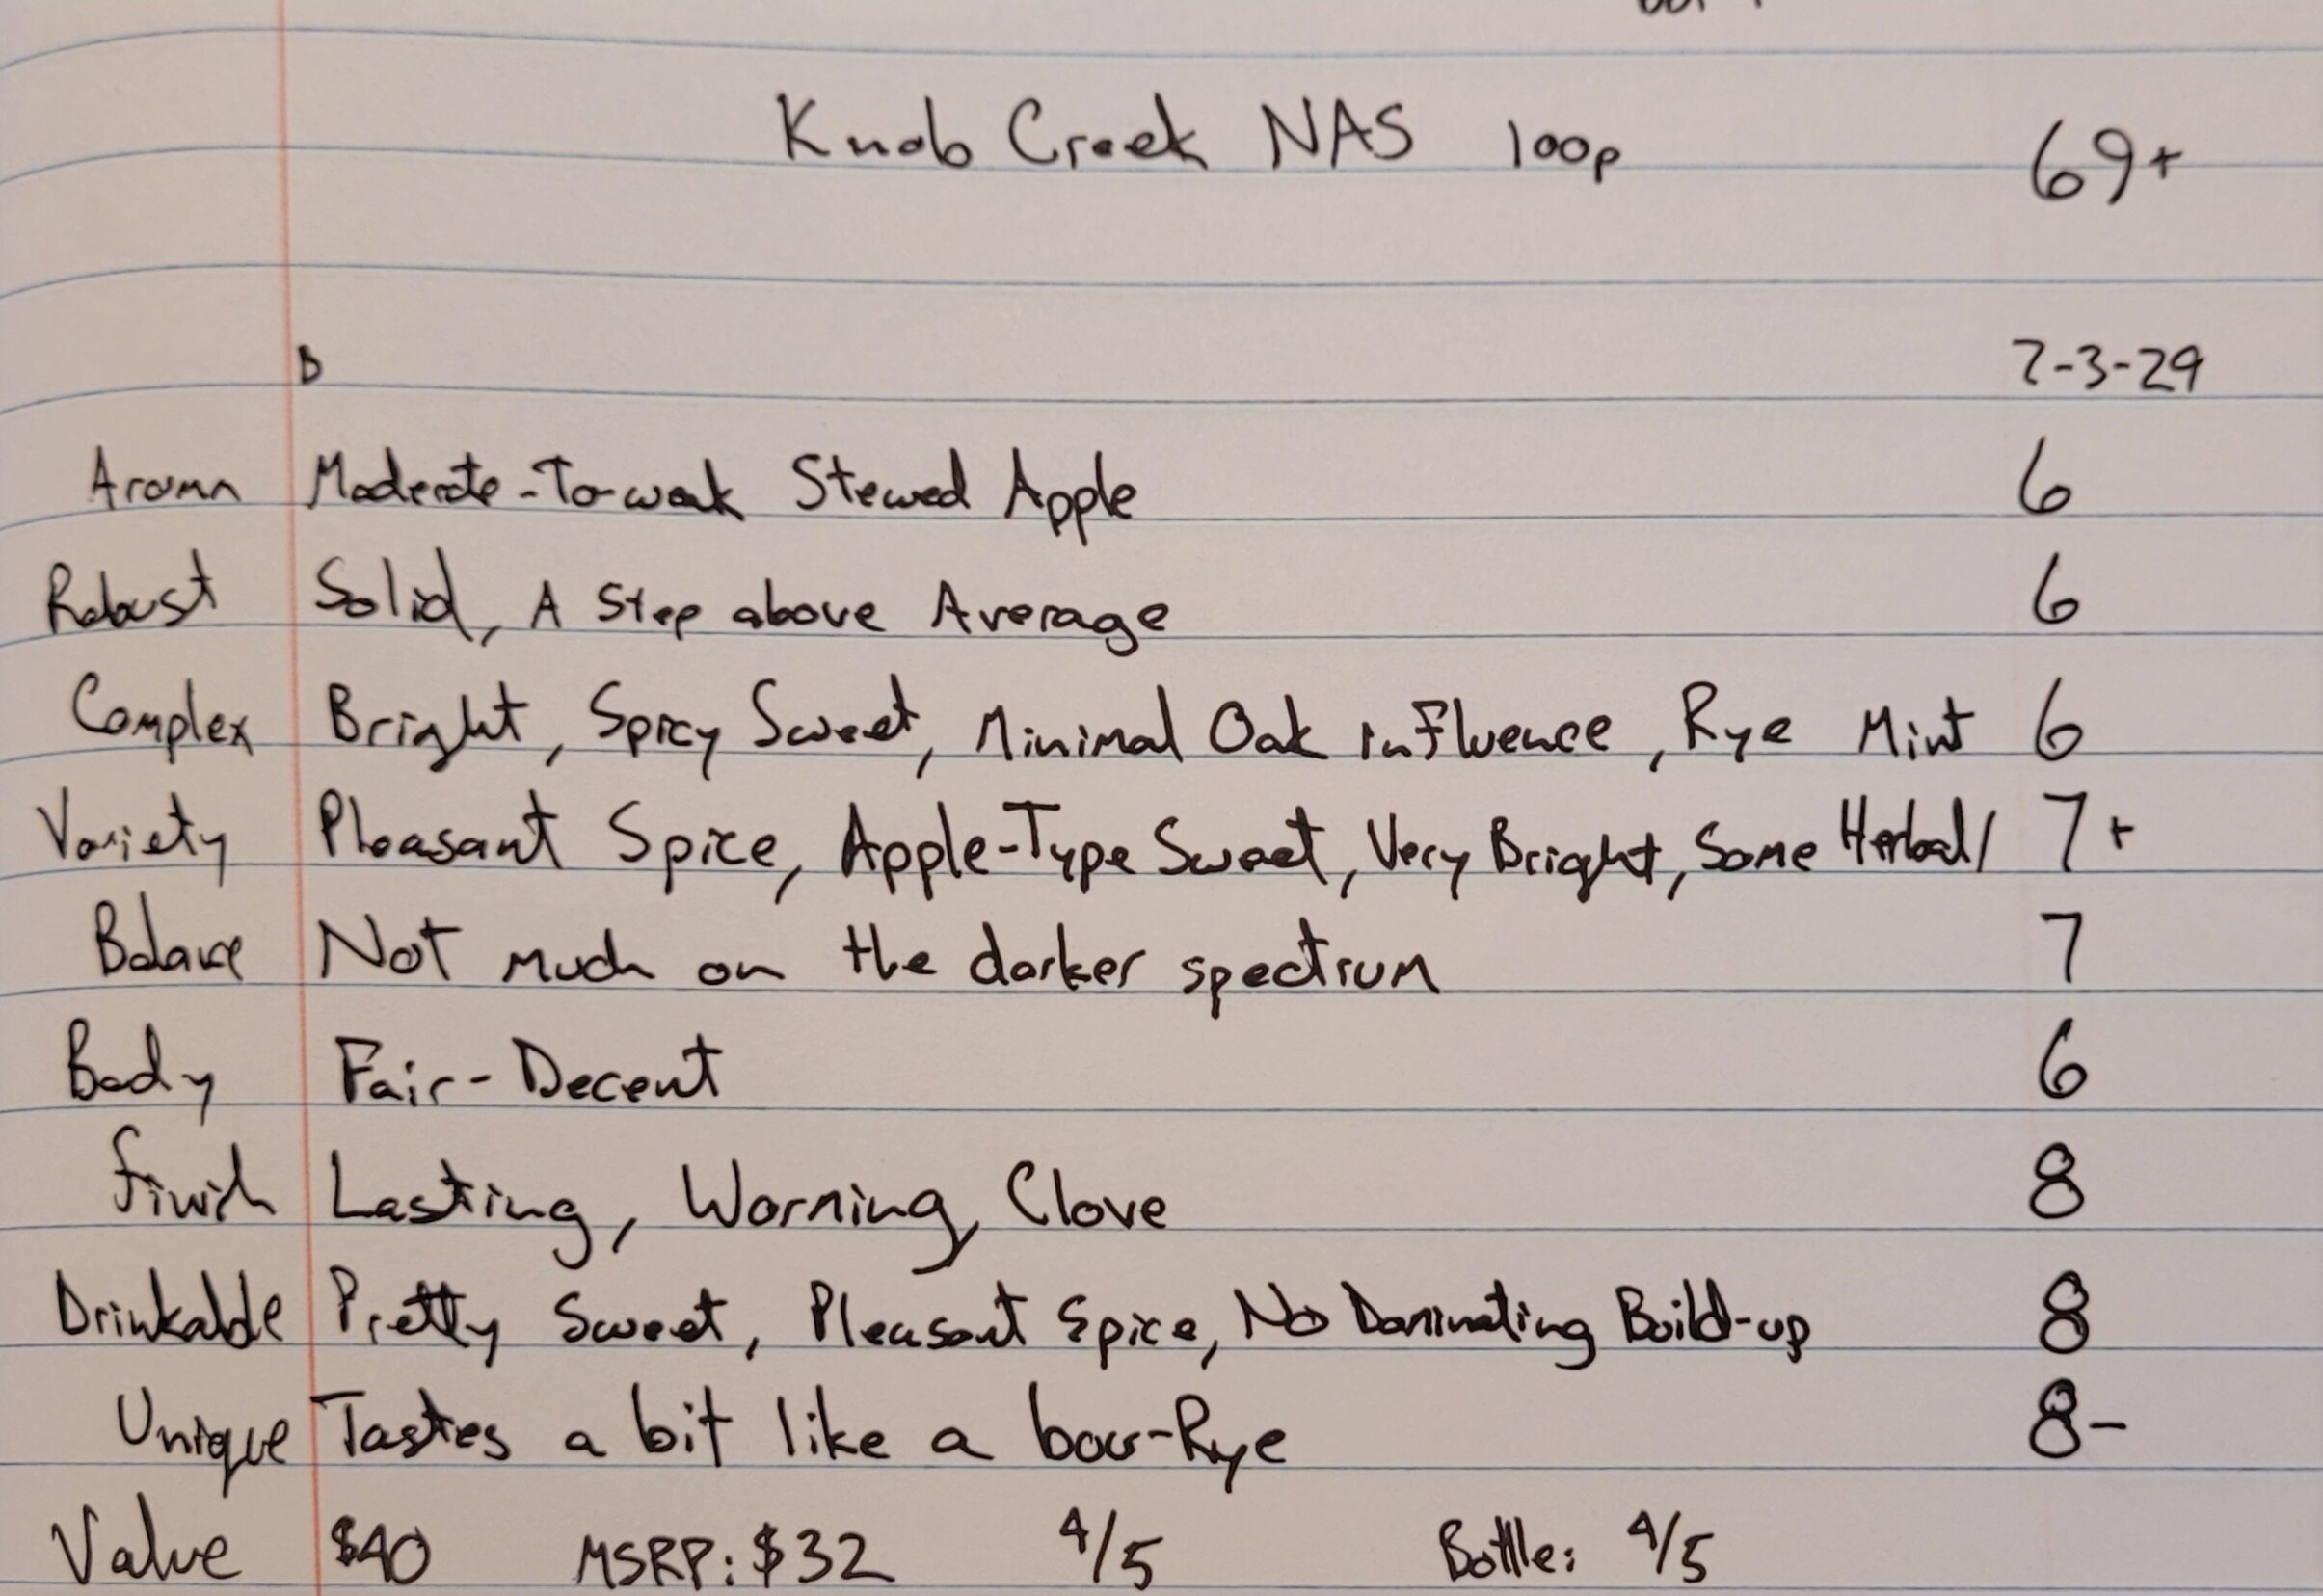 Knob Creek NAS 100p 69+
D 7-3-29
Aroma Moderate-To-weak Stewed Apple 6
Robust Solid, A Step above Average 6
Complex Bright, Spicy Sweet, Minimal Oak influence, Rye Mint 6
Variety Pleasant Spice, Apple-Type Sweet, Very Bright, Some Herbal/ 7+
Balance Not much on the darker spectrum 7
Body Fair-Decent 6
Finish Lasting, Warming, Clove 8
Drinkable Pretty Sweet, Pleasant Spice, No Dominating Build-up 8
Unique Tastes a bit like a bou-Rye 8-
Value $40 MSRP: $32 4/5 Bottle: 4/5